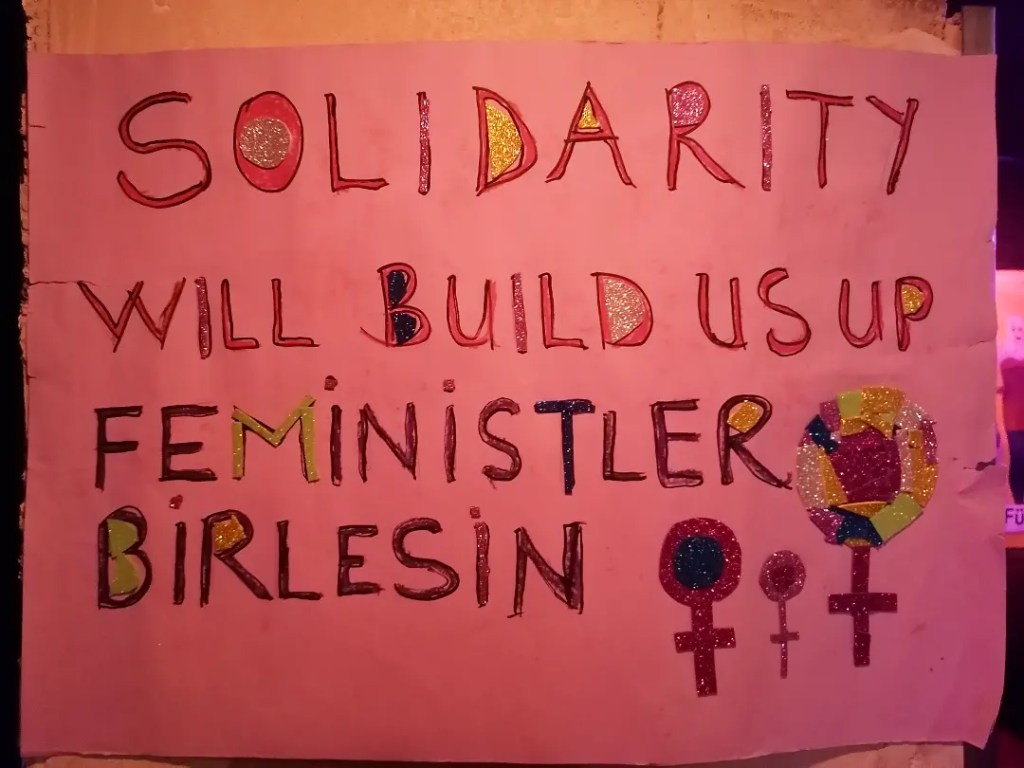 SOLIDARITY
WILL BUILD US UP
FEMİNİSTLER
BİRLESİN
Fü